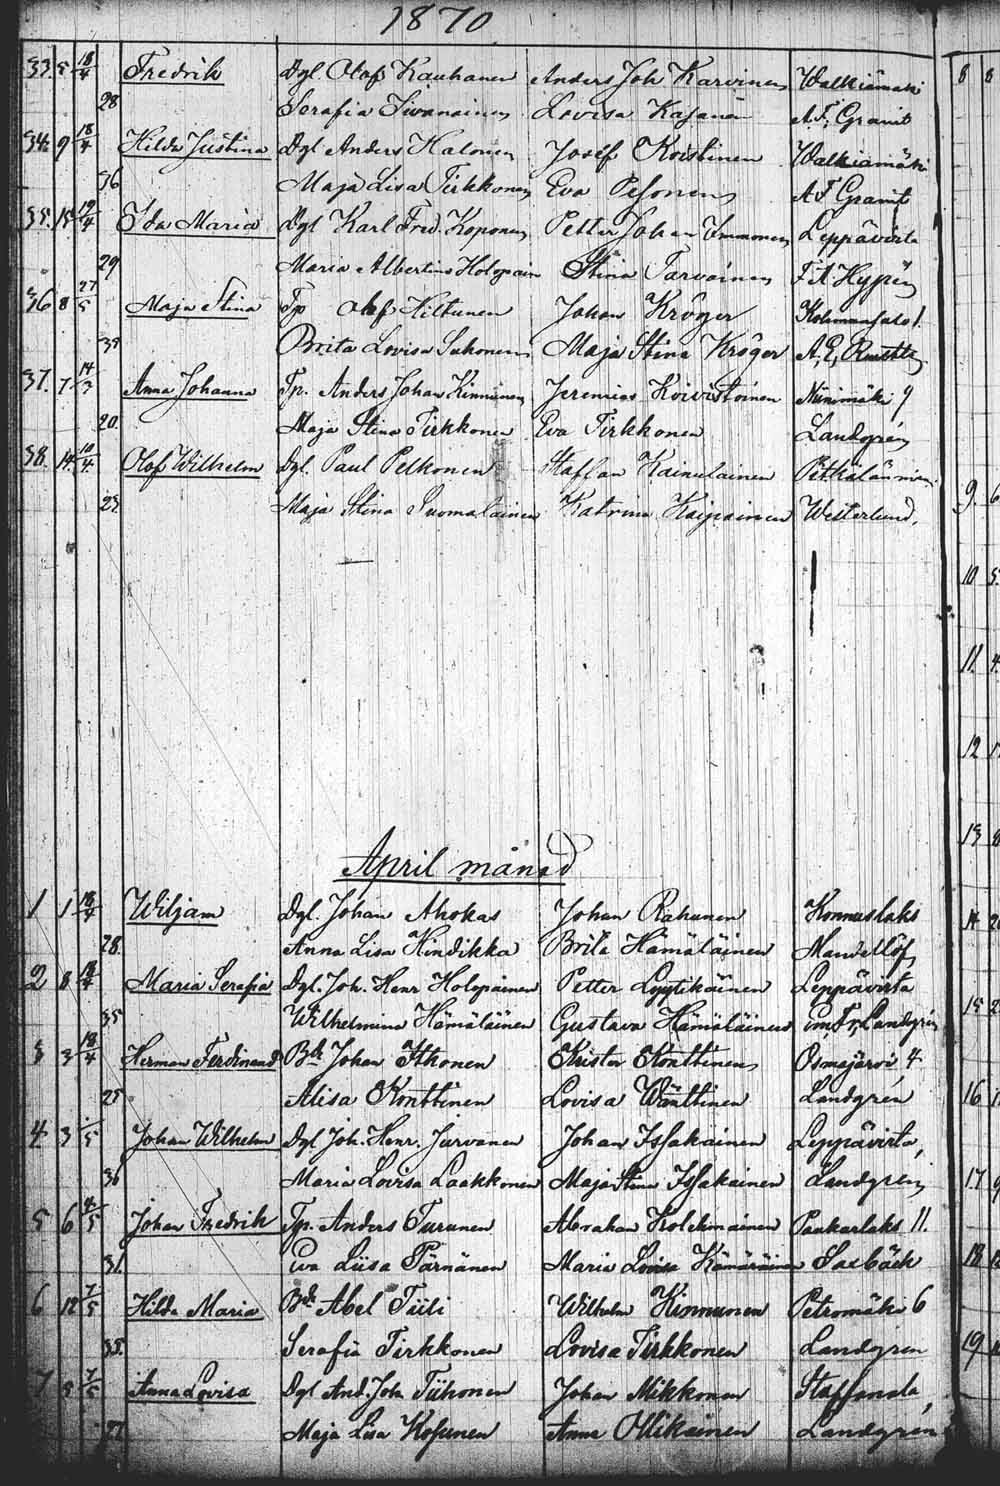 1870
33. 5 18/4 Fredrik Dgl. Olof Kauhanen Anders Joh Karvinen Walkiämäki
28 Serafia Sivonainen Lovisa Kajanä A. F. Granit
34. 9 18/4 Hilda Justina Dgl Anders Halonen Josef Koistinen Walkiamäki
36 Maja Lisa Tirkkonen Eva Pesonen A F Granit
35. 15 19/4 Ida Maria Dgl Karl Fred. Koponen Petter Johan Immonen Leppävirta
29 Maria Albertina Holopain Stina Tarvainen F. A Hypén
36 8 27/5 Maja Stina Tp Olof Hiltunen Johan Kröger
39 Brita Lovisa Suhonen Maja Stina Kröger A, E,
37. 7 14/3 Anna Johanna Tp. Anders Johan Kinnunen Jeremias Koivistoinen Niinimäki 9
20. Maja Stina Tirkkonen Eva Tirkkonen Landgrén
38. 14 10/4 Olof Wilhelm Dgl. Paul Pelkonen Staffan Kainulainen
23 Maja Stina Suomalainen Katrina Kaipainen Westerlund.
April månad
1 1 18/4 Wiljam Dgl. Johan Ahokas Johan Rahunen Konnuslaks
28. Anna Lisa Hindikka Brita Hämäläinen Mandellöf
2 8 18/4 Maria Serafia Dgl. Joh. Henr Holopainen Petter Lyytikäinen Leppävirta
35 Wilhelmina Hämäläinen Gustava Hämäläinen Landgrén
3 3 18/4 Herman Ferdinand Bd Johan Itkonen Krister Konttinen Osmajärvi 4.
25 Alisa Konttinen Lovisa Wänttinen Landgrén
4. 3 /5 Johan Wilhelm Dgl Joh. Henr. Jurvanen Johan Issakainen Leppävirta
36 Maria Lovisa Laakkonen Maja Stina Issakainen Landgrén
5 6 /5 Johan Fredrik Tp. Anders Turunen Abraham Kolehmainen Paukarlaks 11.
31. Eva Liisa Pärnänen Maria Lovisa Kämäräinen Saxbäck
6 12 7/5 Hilda Maria Bd Abel Tiili Wilhelm Kinnunen Petromäki 6
35. Serafia Tirkkonen Lovisa Tirkkonen Landgren
7 5 7/5 Anna Lovisa Dgl And. Joh. Tiihonen Johan Mikkonen Staffansla
27 Maja Lisa Kosunen Anna Ollikainen Landgrén
8 8
9. 6
10 5.
11. 4.
12
13
14
15 2
16
17
18
19